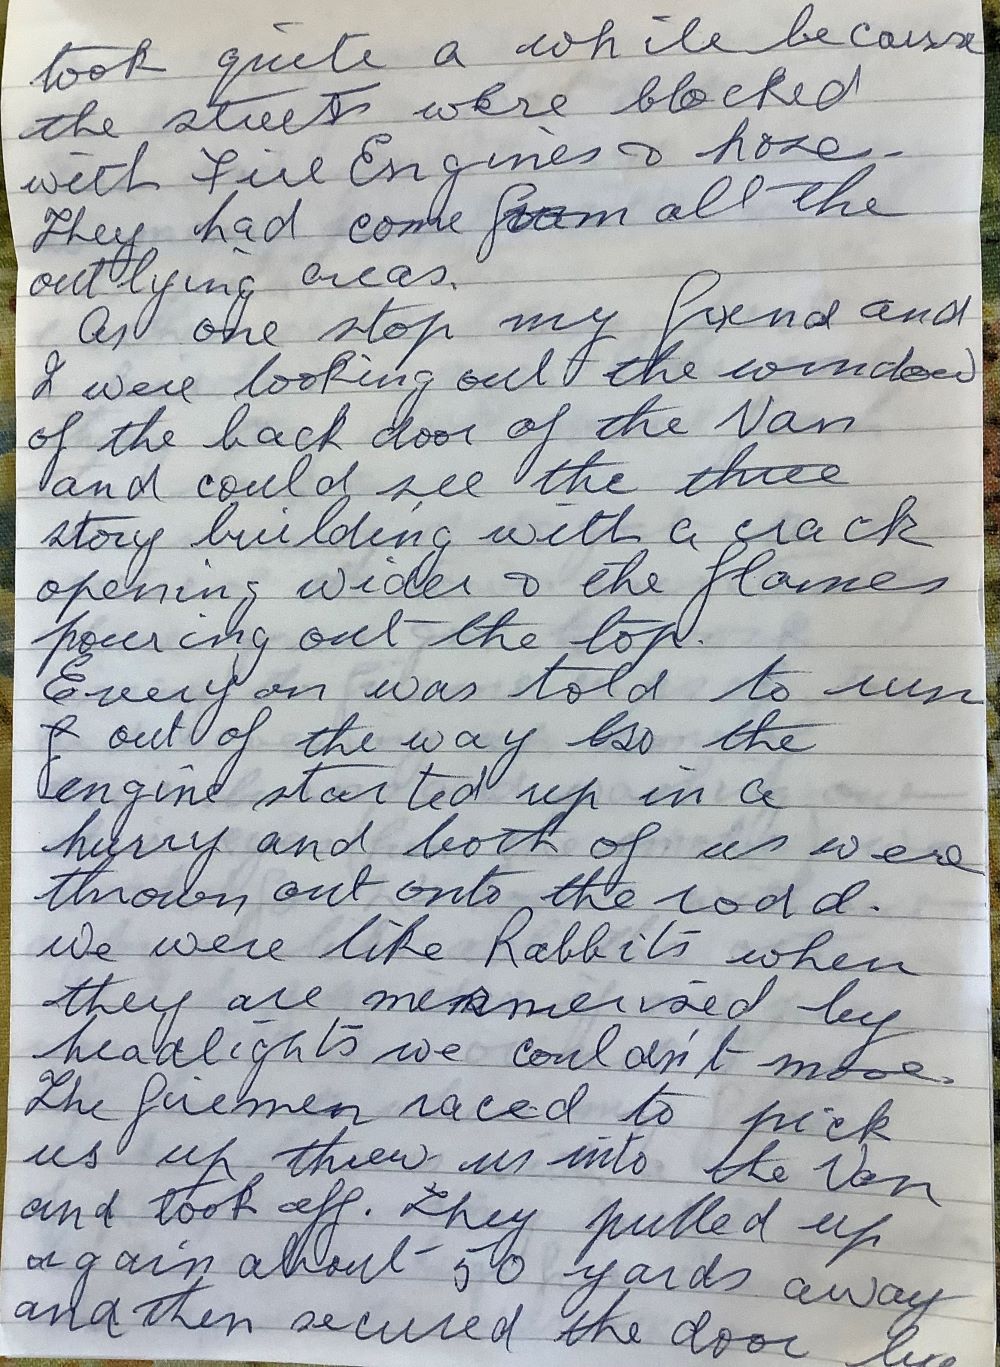 took quite a while because
the streets were blocked
with Fire Engines & hose.
They had come from all the
outlying areas.
As one stop my friend and
I were looking out the window
of the back door of the Van
and could see the three
story building with a crack
opening wider & the flames
pouring out the top.
Everyon was told to run
out of the way so the
engine started up in a
hurry and both of us were
thrown out onto the road.
we were like Rabbits when
they are mesmerised by
headlights we couldn't move.
The firemen raced to pick
us up threw us into the Van
and took off. They pulled up
again about 50 yards away
and then secured the door